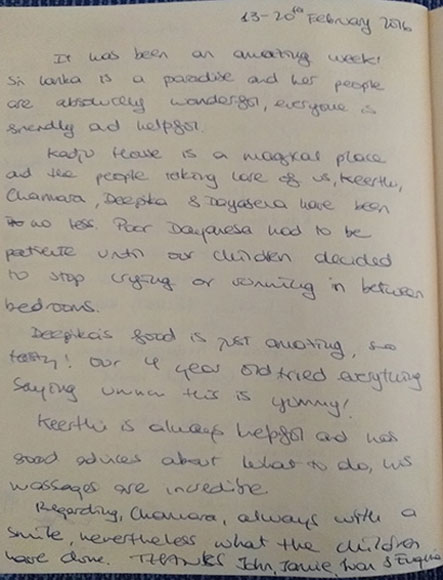 13-20th February 2016
It has been an amazing week!
Sri Lanka is a paradise and her people
are absolutely wonderful, everyone is
friendly and helpful.
Kadju House is a magical place
and the people taking care of us, Keerthi,
Chamara, Deepika & Dayasena have been
no less. Poor Dayanesa had to be
patiente until our children decided
to stop crying or running in between
bedrooms.
Deepika's food is just amazing, so
tasty! Our 4 year old tried everything
saying ummm this is yummy!
Keerthi is always helpful and has
good advices about what to do, his
massages are incredible.
Regarding, Chamara, always with a
smile, nevertheless what the children
have done. THANKS John, Jamie, Ivan &